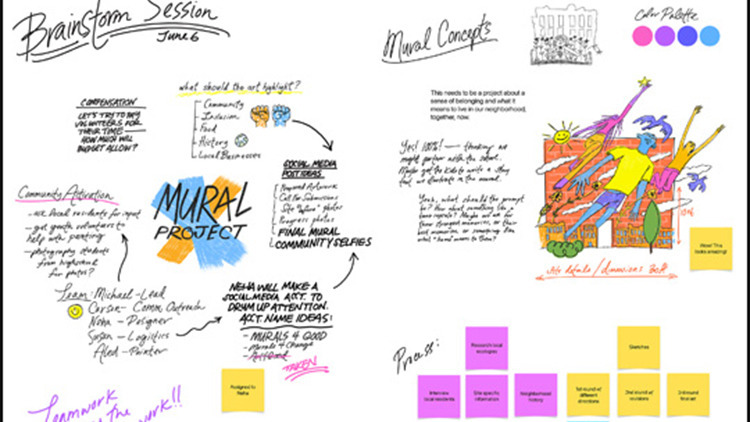 Brainstorm Session
June 6
COMPENSATION
LET'S TRY TO PAY
VOLUNTEERS FOR
THEIR TIME —
HOW MUCH WILL
BUDGET ALLOW?
what should the art highlight?
Community
Inclusion
Food
History
Local Businesses
SOCIAL MEDIA
POST IDEAS
Call For Submissions
Site "before" photos
Progress photos
FINAL MURAL
COMMUNITY SELFIES
Community Activation
- use local residents for input
- get youth volunteers to
help with painting
- photography students
from highschool
for photos?
MURAL
PROJECT
Team: Michael - Lead
Carson - Comm. Outreach
Neha - Designer
Susan - Logistics
- Painter
NEHA WILL MAKE A
SOCIAL MEDIA ACCT. TO
DRUM UP ATTENTION.
ACCT. NAME IDEAS:
- MURALS 4 GOOD
- Murals 4 Change
TAKEN
Assigned to
Neha
Teamwork
the
work!!
Mural Concepts
Color Palette
This needs to be a project about a
sense of belonging and what it
means to live in our neighborhood,
together, now.
Yes! 100%! — thinking we
might partner with the school.
Maybe get the kids to write a story
that we illustrate in the mural.
Yeah, what should the prompt
be? How about something about
Maybe we ask for
their strongest memories, or their
best memories, or something like
what "home" means to them?
Wow! This
looks amazing!
Process:
Research local
ecologies
Interview
local residents
Site specific
information
Neighborhood
history
Sketches
1st round of
different
directions
2nd round of
revisions